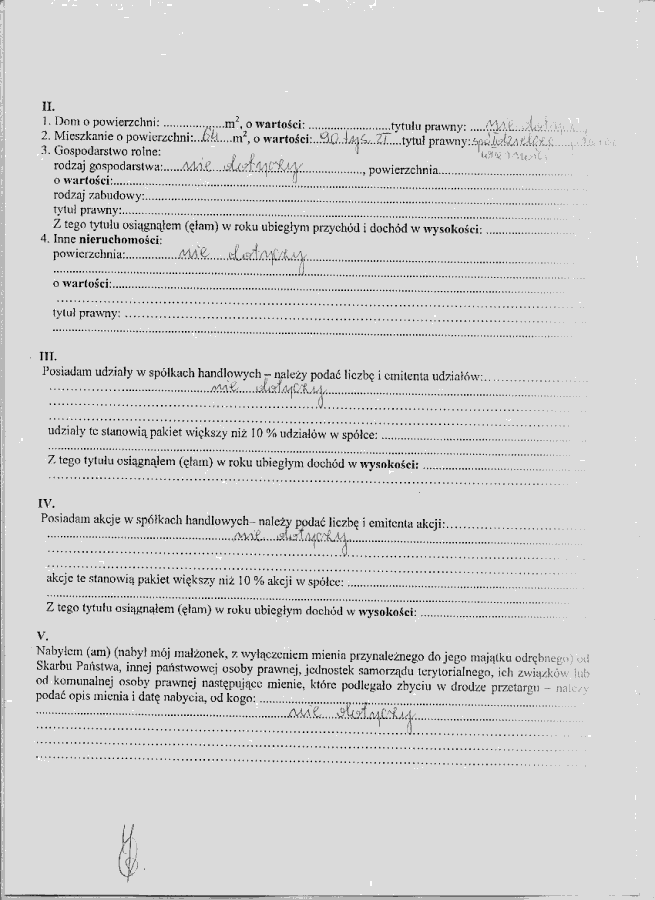 II.
1. Dom o powierzchni: ....................m², o wartości: ..........................tytułu prawny: .....nie dotyczy
2. Mieszkanie o powierzchni: 64 m², o wartości: 90 tys zł tytuł prawny: spółdzielcze
3. Gospodarstwo rolne:
rodzaj gospodarstwa: nie dotyczy, powierzchnia
o wartości:
rodzaj zabudowy:
tytuł prawny:
Z tego tytułu osiągnąłem (ęłam) w roku ubiegłym przychód i dochód w wysokości:
4. Inne nieruchomości:
powierzchnia: nie dotyczy
o wartości:
tytuł prawny:
III.
Posiadam udziały w spółkach handlowych – należy podać liczbę i emitenta udziałów:
nie dotyczy
udziały te stanowią pakiet większy niż 10 % udziałów w spółce:
Z tego tytułu osiągnąłem (ęłam) w roku ubiegłym dochód w wysokości:
IV.
Posiadam akcje w spółkach handlowych– należy podać liczbę i emitenta akcji:
nie dotyczy
akcje te stanowią pakiet większy niż 10 % akcji w spółce:
Z tego tytułu osiągnąłem (ęłam) w roku ubiegłym dochód w wysokości:
V.
Nabyłem (am) (nabył mój małżonek, z wyłączeniem mienia przynależnego do jego majątku odrębnego) od
Skarbu Państwa, innej państwowej osoby prawnej, jednostek samorządu terytorialnego, ich związków lub
od komunalnej osoby prawnej następujące mienie, które podlegało zbyciu w drodze przetargu – należy
podać opis mienia i datę nabycia, od kogo:
nie dotyczy